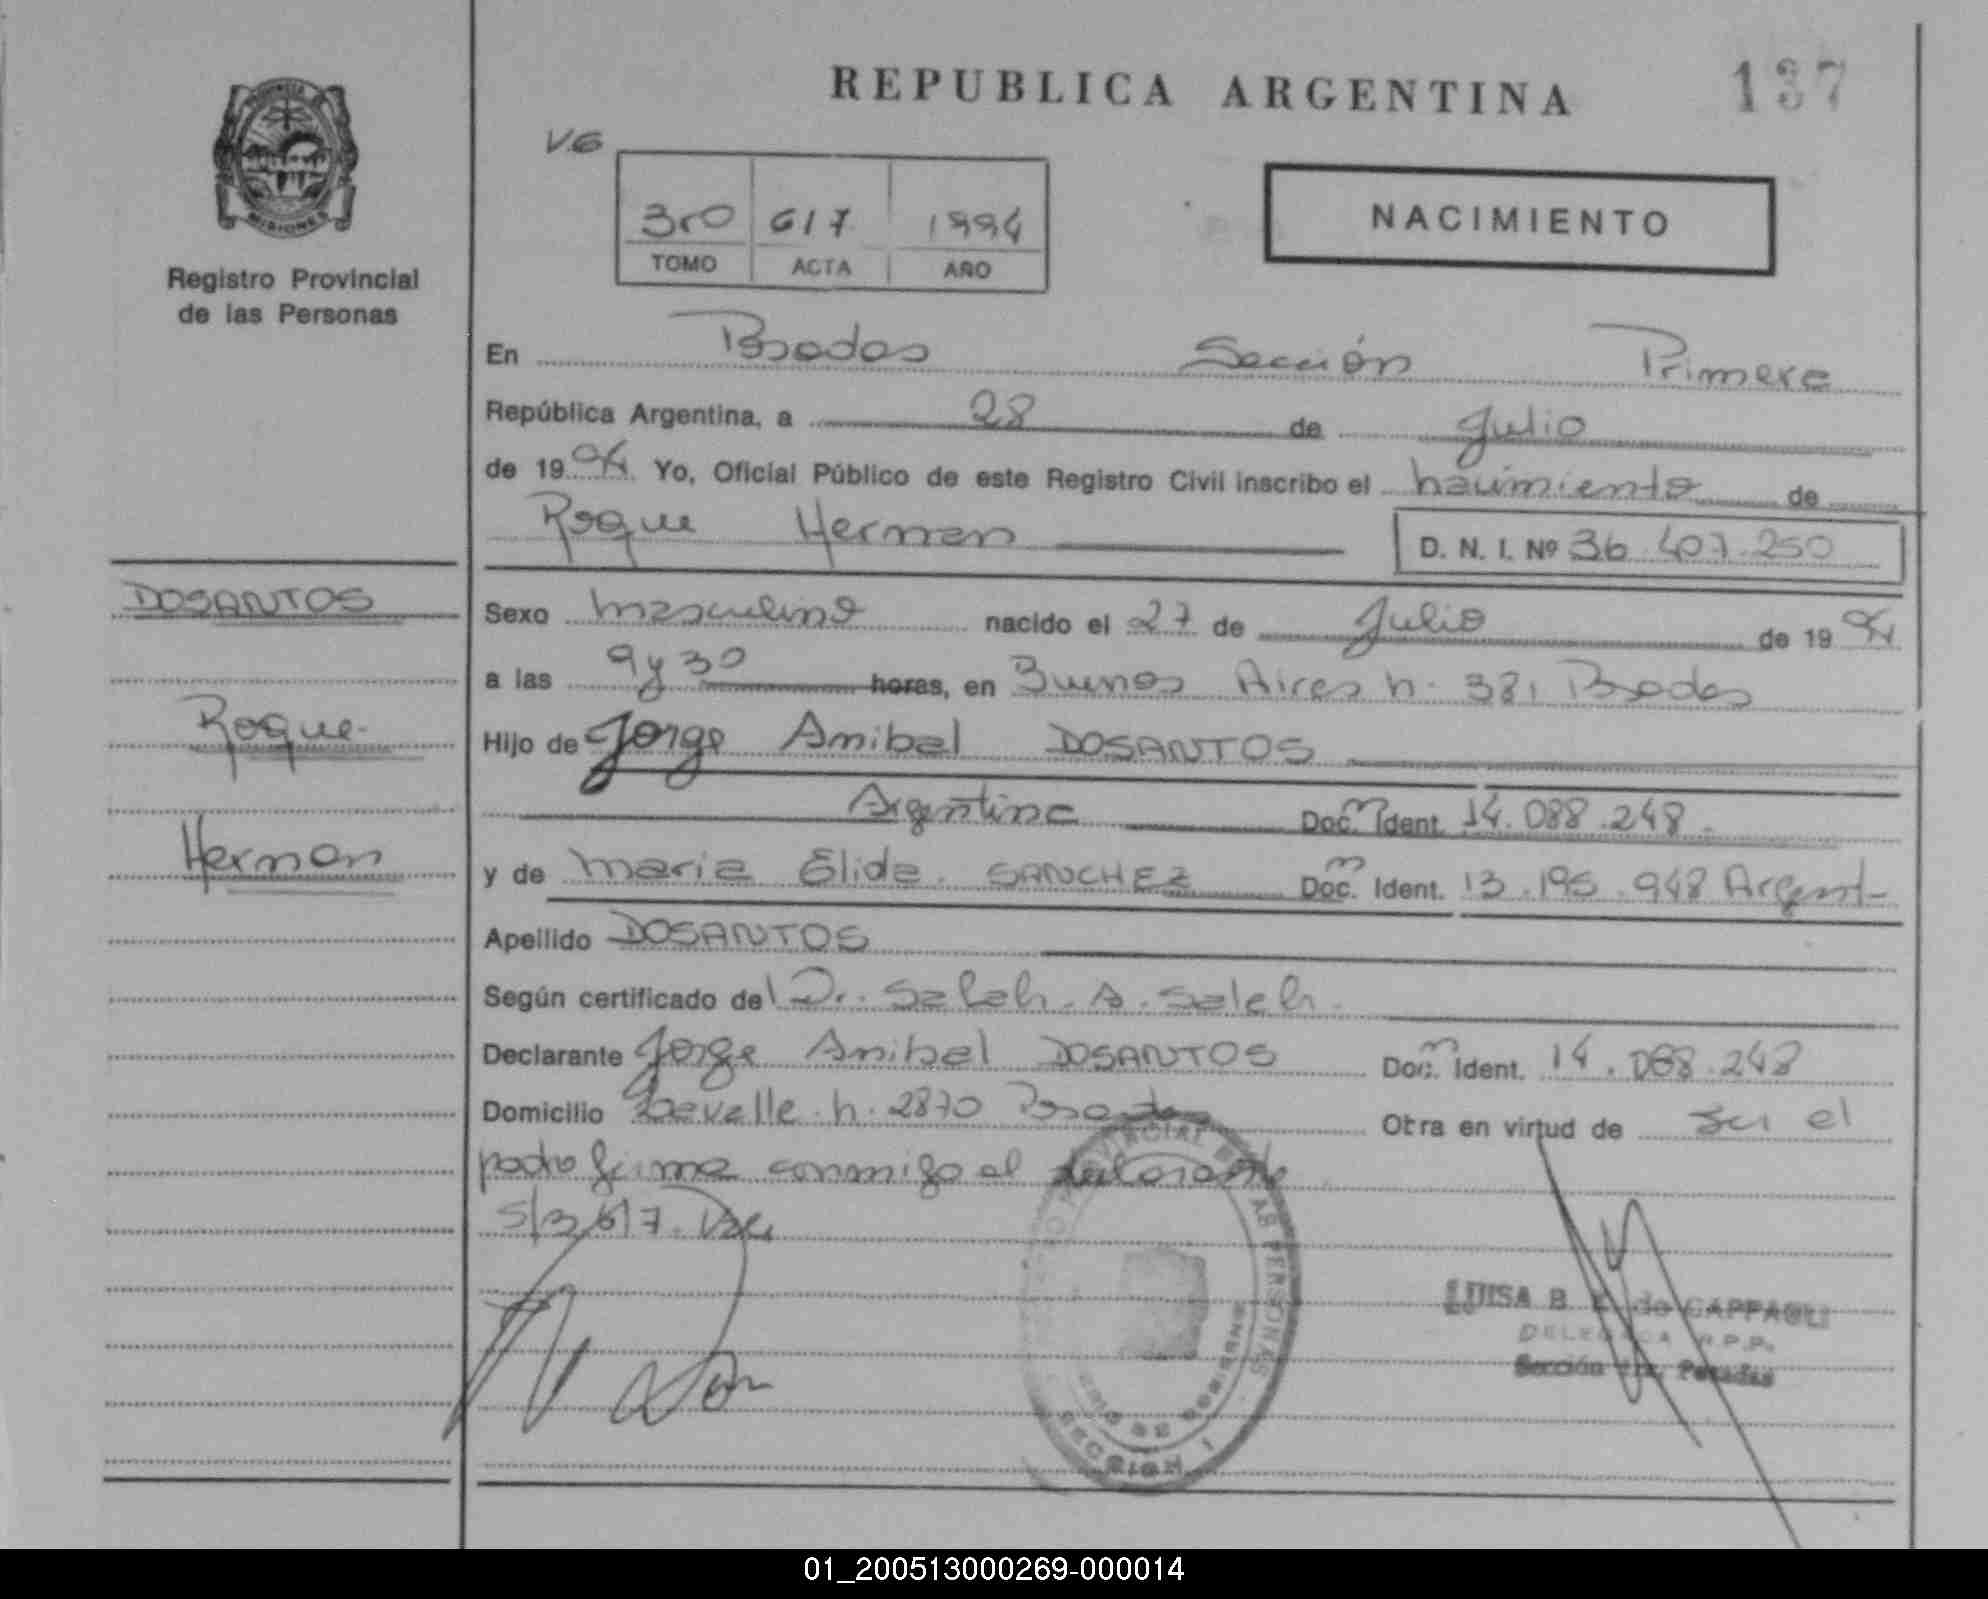 REPUBLICA ARGENTINA
137
V.G
3ro 617 1994
TOMO ACTA AÑO
NACIMIENTO
PROVINCIA
MISIONES
Registro Provincial
de las Personas
En Posadas Sección Primera
República Argentina, a 28 de Julio
de 1994 Yo, Oficial Público de este Registro Civil inscribo el nacimiento de
Roque Hernan D. N. I. Nº 36.407.250
DOSANTOS
Roque
Hernan
Sexo masculino nacido el 27 de Julio de 1994
a las 9 y 30 horas, en Buenos Aires n. 381 Posadas
Hijo de Jorge Anibal DOSANTOS
Argentina Doc. Ident. 14.088.248.
y de Maria Elida SANCHEZ Doc. Ident. 13.195.948 Argent-
Apellido DOSANTOS
Según certificado del Dr. Saleh. A. Saleh.
Declarante Jorge Anibal DOSANTOS Doc. Ident. 14.088.248
Domicilio n. 2870 Posadas Otra en virtud de ser el
padre firma conmigo el declarante
S/3 6/7. Vale
LUISA B. de CAPPAGLI
DELEGADA R.P.P.
Sección 1ra. Posadas
PROVINCIAL DE LAS PERSONAS
SECCION I
01_200513000269-000014